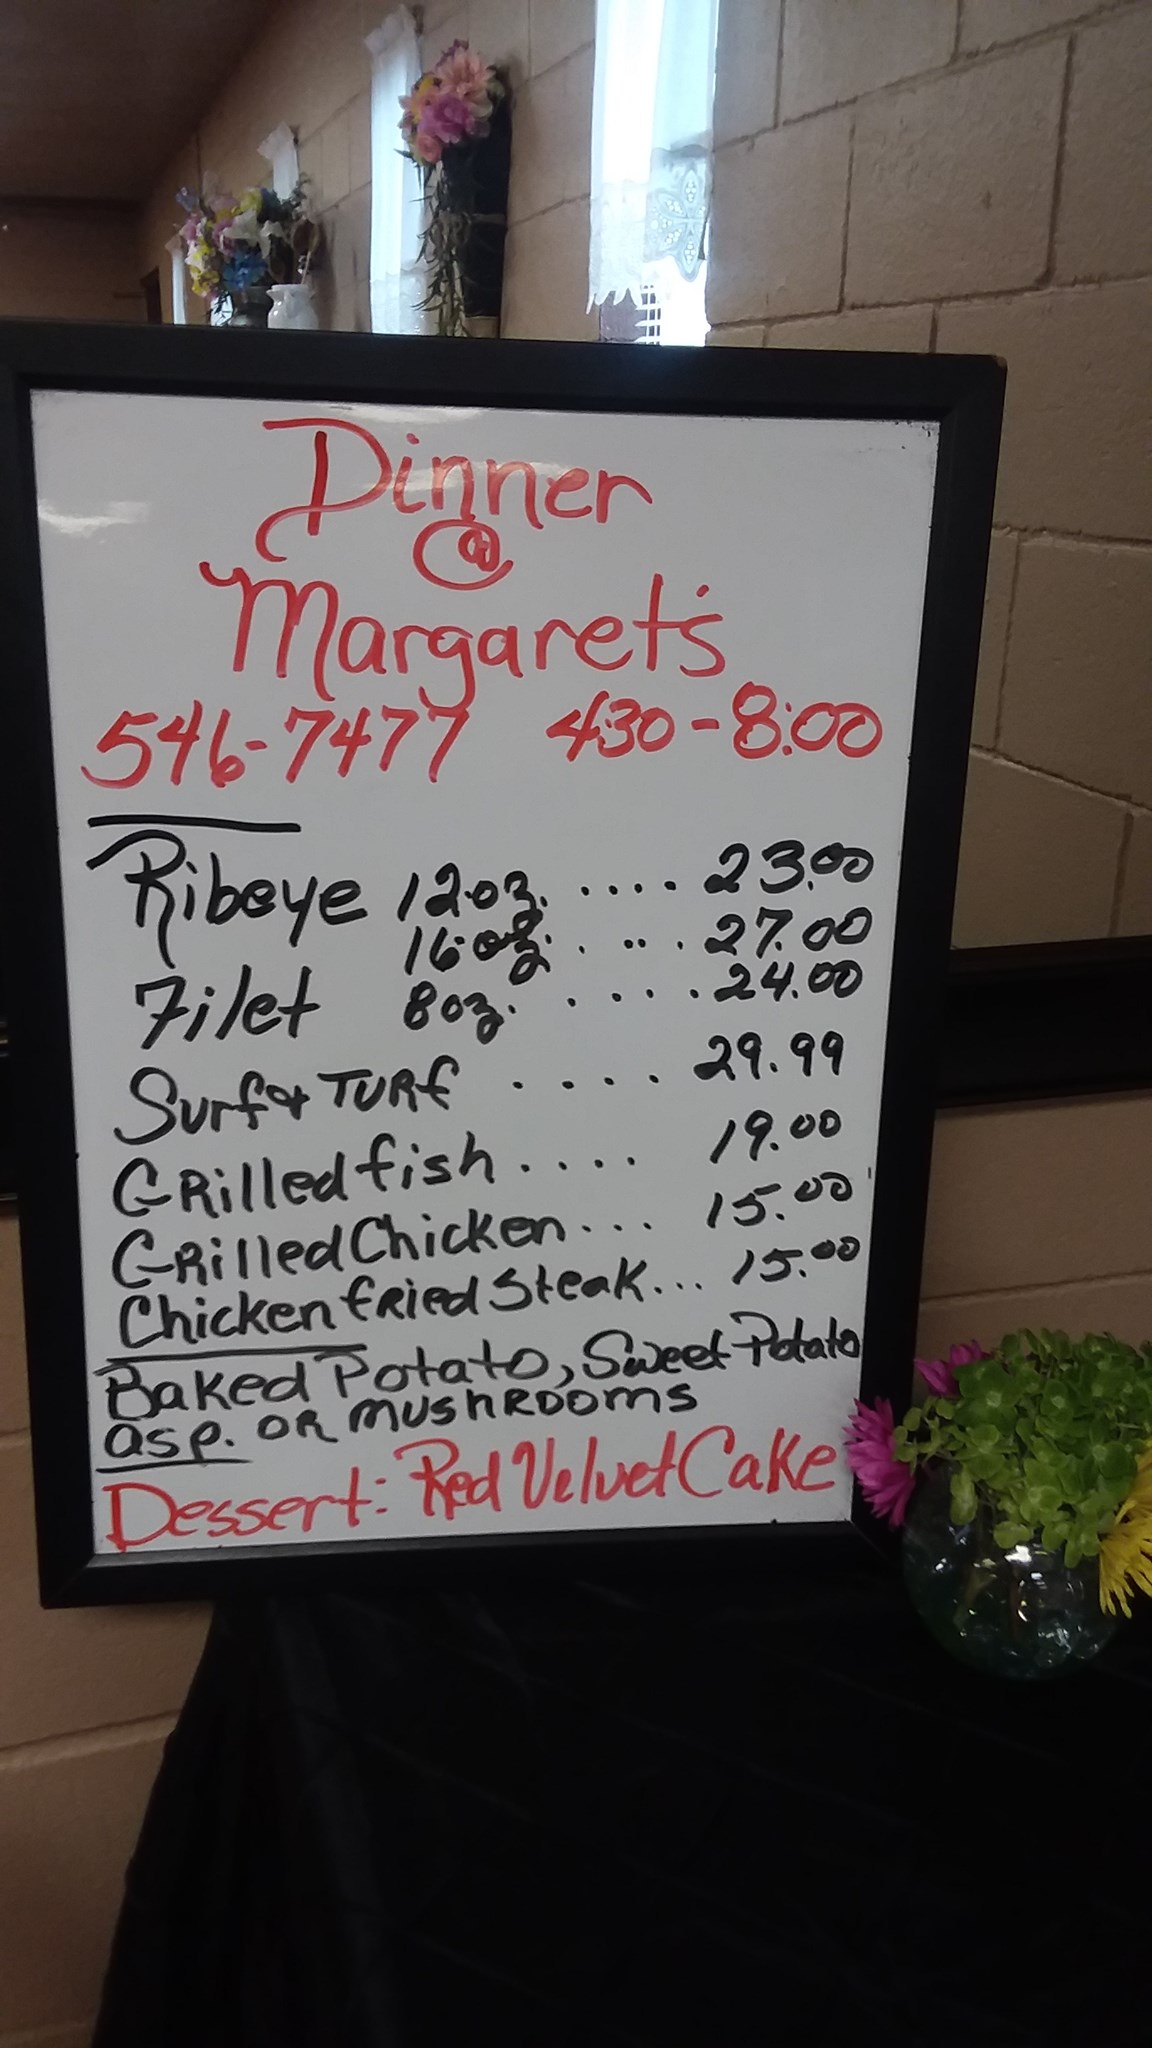 Dinner
@
Margaret's
546-7477 4:30-8:00
Ribeye 12oz. .... 23.00
16oz. .... 27.00
Filet 8oz. .... 24.00
Surf & Turf .... 29.99
Grilled fish .... 19.00
Grilled Chicken ... 15.00
Chicken fried Steak ... 15.00
Baked Potato, Sweet Potato
asp. OR MUSHROOMS
Dessert: Red Velvet Cake